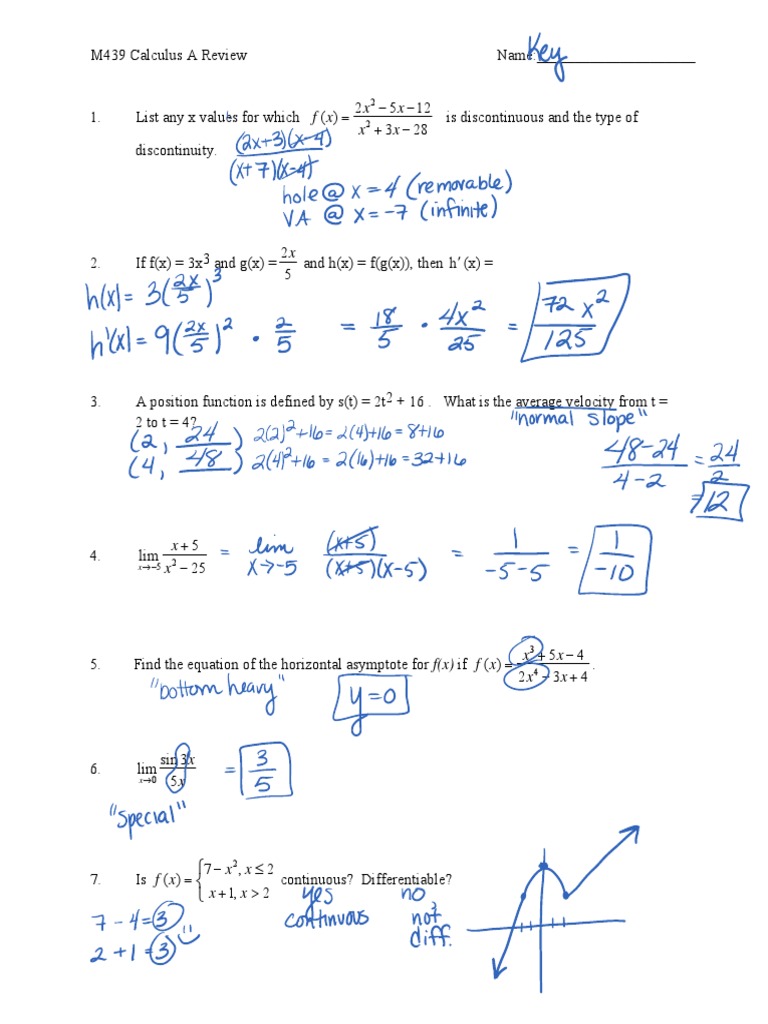 M439 Calculus A Review Name: Key
1. List any x values for which f(x) = (2x² – 5x – 12)/(x² + 3x – 28) is discontinuous and the type of
discontinuity. (2x+3)(x-4)/(x+7)(x-4)
hole @ x = 4 (removable)
VA @ x = -7 (infinite)
2. If f(x) = 3x³ and g(x) = 2x/5 and h(x) = f(g(x)), then h′ (x) =
h(x) = 3(2x/5)³
h'(x) = 9(2x/5)² · 2/5 = 18/5 · 4x²/25 = 72x²/125
3. A position function is defined by s(t) = 2t² + 16 . What is the average velocity from t =
2 to t = 4? "normal slope"
(2, 24) 2(2)²+16 = 2(4)+16 = 8+16
(4, 48) 2(4)²+16 = 2(16)+16 = 32+16
48-24/4-2 = 24/2
= 12
4. lim x→-5 (x + 5)/(x² – 25) = lim x→-5 (x+5)/(x+5)(x-5) = 1/-5-5 = 1/-10
5. Find the equation of the horizontal asymptote for f(x) if f(x) = (x³ + 5x – 4)/(2x⁴ – 3x + 4) .
"bottom heavy" y = 0
6. lim x→0 sin 3x/5x = 3/5
"special"
7. Is f(x) = { 7 – x², x ≤ 2 continuous? Differentiable?
x + 1, x > 2 yes no
7 - 4 = 3 continuous not
2 + 1 = 3 diff.